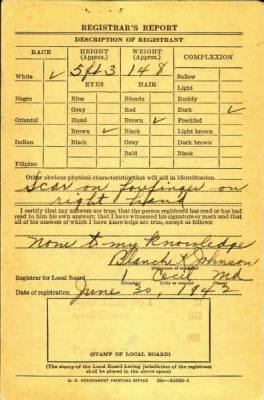 REGISTRAR'S REPORT
DESCRIPTION OF REGISTRANT
RACE
HEIGHT (Approx.)
WEIGHT (Approx.)
COMPLEXION
White ✓
5 ft 3
148
Sallow
EYES
HAIR
Light
Negro
Blue
Blonde
Ruddy
Gray
Red
Dark ✓
Oriental
Hazel
Brown ✓
Freckled
Brown ✓
Black
Light brown
Indian
Black
Gray
Dark brown
Bald
Black
Filipino
Other obvious physical characteristics that will aid in identification
Scar on forfinger on
right hand
I certify that my answers are true; that the person registered has read or has had
read to him his own answers; that I have witnessed his signature or mark and that
all of his answers of which I have knowledge are true, except as follows:
None to my Knowledge
Blanche Johnson
(Signature of registrar)
Registrar for Local Board Cecil Md
(Number) (City or county) (State)
Date of registration June 30, 1942
(STAMP OF LOCAL BOARD)
(The stamp of the Local Board having jurisdiction of the registrant
shall be placed in the above space.)
U. S. GOVERNMENT PRINTING OFFICE